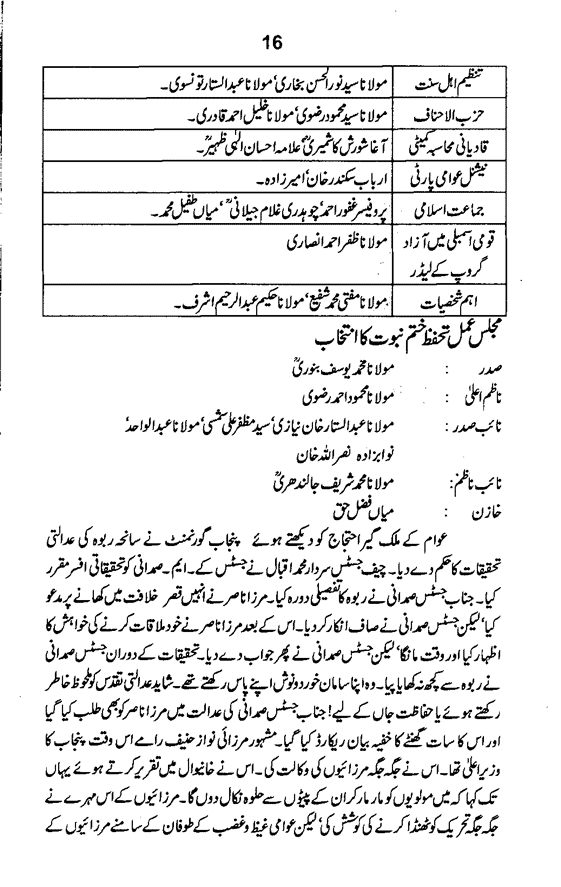 16
تنظیم اہل سنت مولانا سید نور الحسن بخاری‘ مولانا عبدالستار تونسوی۔
حزب الاحناف مولانا سید محمود رضوی‘ مولانا خلیل احمد قادری۔
قادیانی محاسبہ کمیٹی آغا شورش کاشمیریؒ علامہ احسان الٰہی ظہیرؒ۔
نیشنل عوامی پارٹی ارباب سکندر خان‘ امیر زادہ۔
جماعت اسلامی پروفیسر غفور احمد‘ چوہدری غلام جیلانیؒ ‘ میاں طفیل محمد۔
قومی اسمبلی میں آزاد مولانا ظفر احمد انصاری
گروپ کے لیڈر
اہم شخصیات مولانا مفتی محمد شفیع‘ مولانا حکیم عبدالرحیم اشرف۔
مجلس عمل تحفظ ختم نبوت کا انتخاب
صدر : مولانا محمد یوسف بنوریؒ
ناظم اعلیٰ : مولانا محمود احمد رضوی
نائب صدر : مولانا عبدالستار خان نیازی‘ سید مظفر علی شمسی‘ مولانا عبدالواحد‘
نوابزادہ نصر اللہ خان
نائب ناظم : مولانا محمد شریف جالندھریؒ
خازن : میاں فضل حق
عوام کے ملک گیر احتجاج کو دیکھتے ہوئے پنجاب گورنمنٹ نے سانحہ ربوہ کی عدالتی
تحقیقات کا حکم دے دیا۔ چیف جسٹس سردار محمد اقبال نے جسٹس کے۔ ایم۔ صمدانی کو تحقیقاتی افسر مقرر
کیا۔ جناب جسٹس صمدانی نے ربوہ کا تفصیلی دورہ کیا۔ مرزا ناصر نے انہیں قصر خلافت میں کھانے پر مدعو
کیا‘ لیکن جسٹس صمدانی نے صاف انکار کر دیا۔ اس کے بعد مرزا ناصر نے خود ملاقات کرنے کی خواہش کا
اظہار کیا اور وقت مانگا‘ لیکن جسٹس صمدانی نے پھر جواب دے دیا۔ تحقیقات کے دوران جسٹس صمدانی
نے ربوہ سے کچھ نہ کھایا پیا۔ وہ اپنا سامان خورد و نوش اپنے پاس رکھتے تھے۔ شاید عدالتی تقدس کو ملحوظ خاطر
رکھتے ہوئے یا حفاظت جاں کے لیے! جناب جسٹس صمدانی کی عدالت میں مرزا ناصر کو بھی طلب کیا گیا
اور اس کا سات گھنٹے کا خفیہ بیان ریکارڈ کیا گیا۔ مشہور مرزائی نواز حنیف رامے اس وقت پنجاب کا
وزیر اعلیٰ تھا۔ اس نے جگہ جگہ مرزائیوں کی وکالت کی۔ اس نے خانیوال میں تقریر کرتے ہوئے یہاں
تک کہا کہ میں مولویوں کو مار مار کر ان کے پیٹوں سے حلوہ نکال دوں گا۔ مرزائیوں کے اس مہرے نے
جگہ جگہ تحریک کو ٹھنڈا کرنے کی کوشش کی‘ لیکن عوامی غیظ و غضب کے طوفان کے سامنے مرزائیوں کے